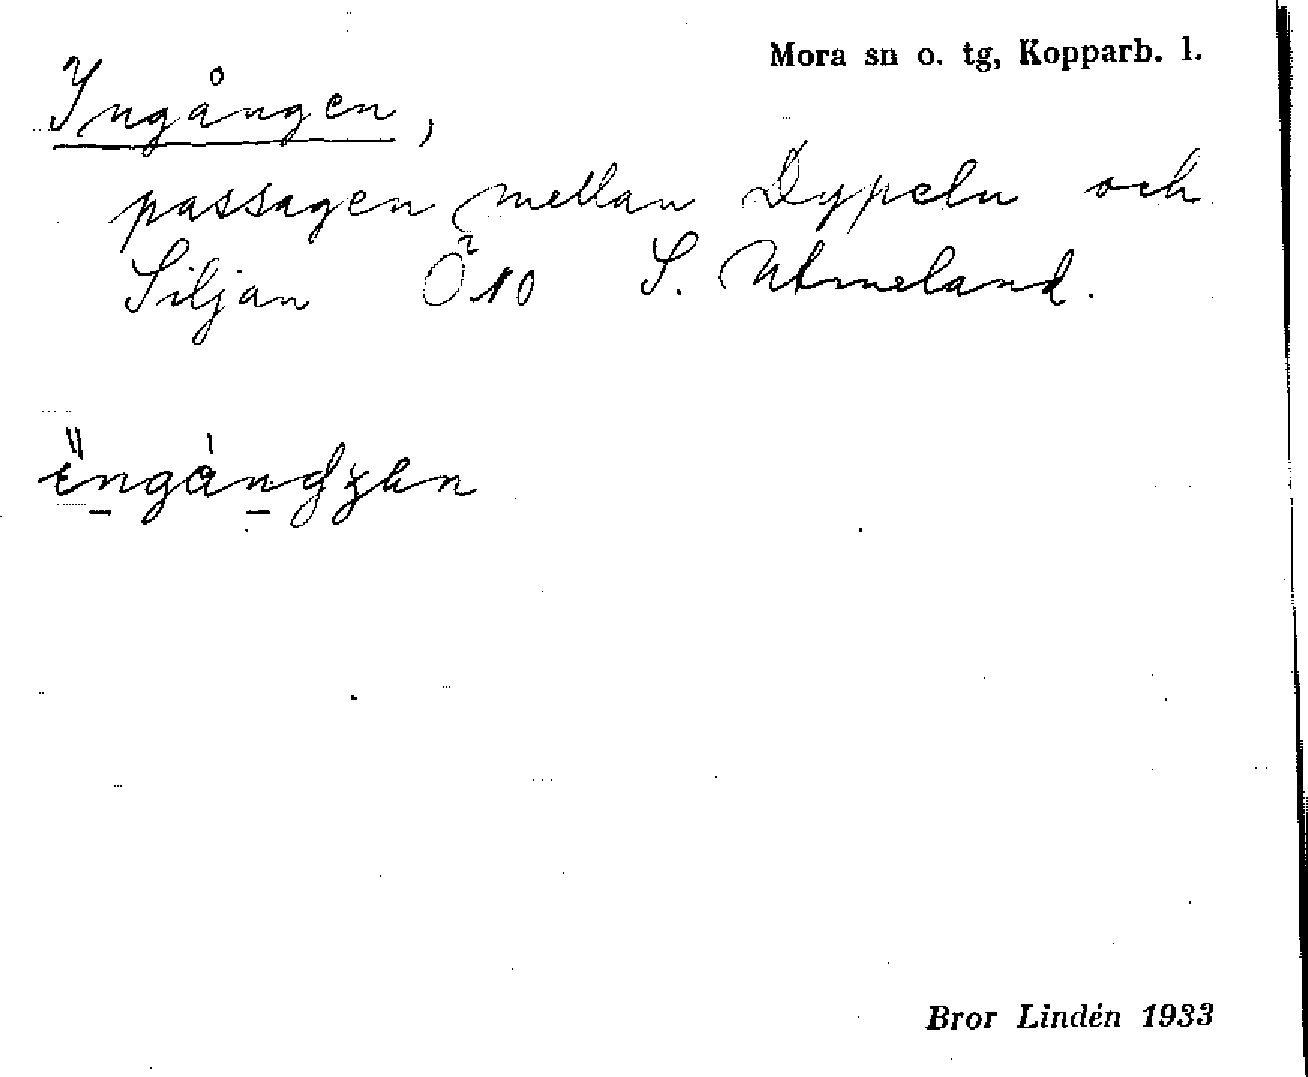 Mora sn o. tg, Kopparb. l.
Ingången,
passagen mellan Dypeln och
Siljan Ö 10 S. Utmeland.
Bror Lindén 1933